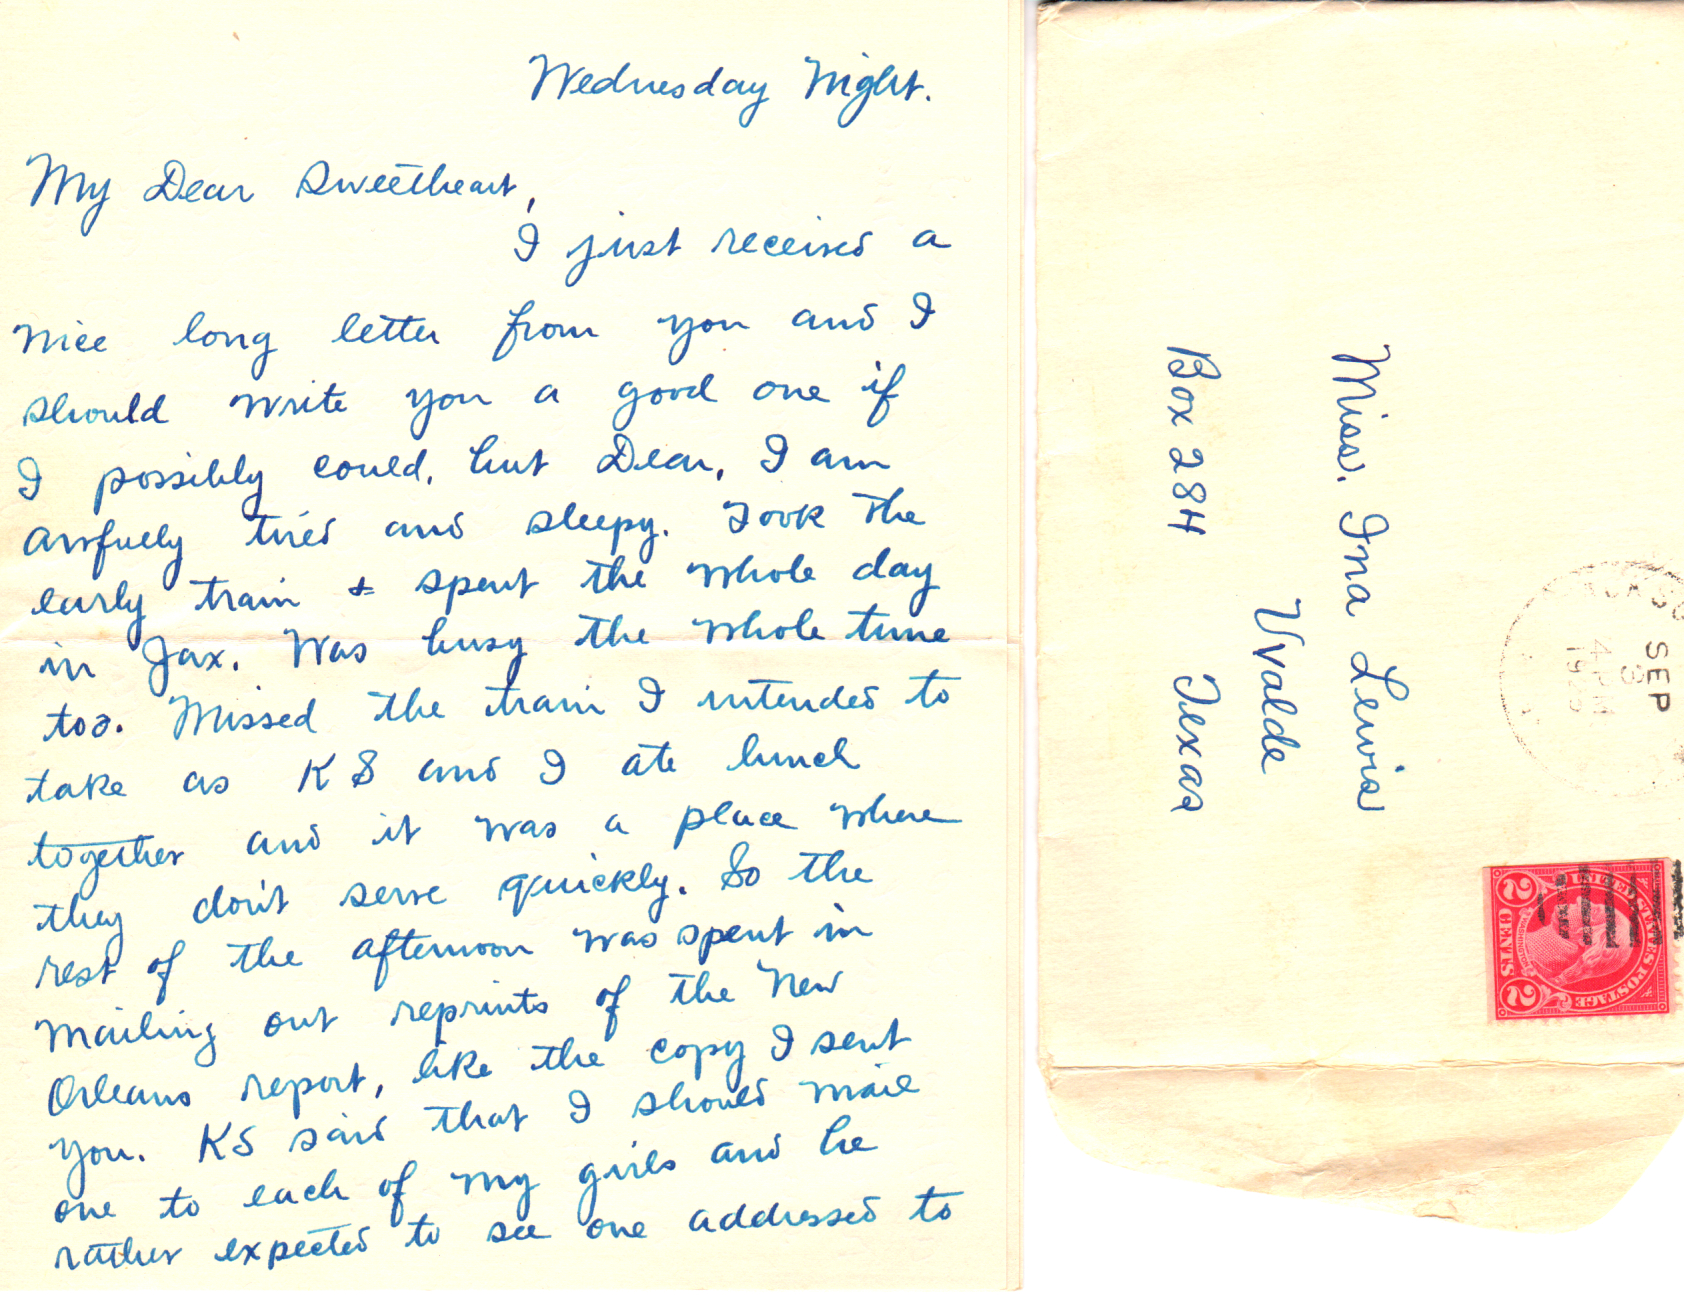 Wednesday Night.
My Dear Sweetheart,
I just received a
nice long letter from you and I
should write you a good one if
I possibly could, but Dear, I am
awfully tired and sleepy. Took the
early train & spent the whole day
in Jax. Was busy the whole time
too. Missed the train I intended to
take as KS and I ate lunch
together and it was a place where
they don't serve quickly. So the
rest of the afternoon was spent in
mailing out reprints of the New
Orleans report, like the copy I sent
you. KS said that I should mail
one to each of my girls and he
rather expected to see one addressed to
Miss. Ina Lewis
Uvalde
Box 284 Texas
SEP
3
4-PM
UNITED STATES POSTAGE
WASHINGTON
2 CENTS 2